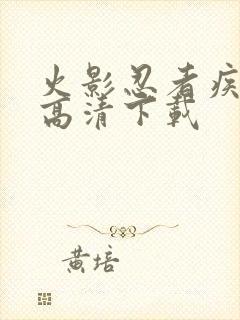 火影忍者疾
高清下载
黄培